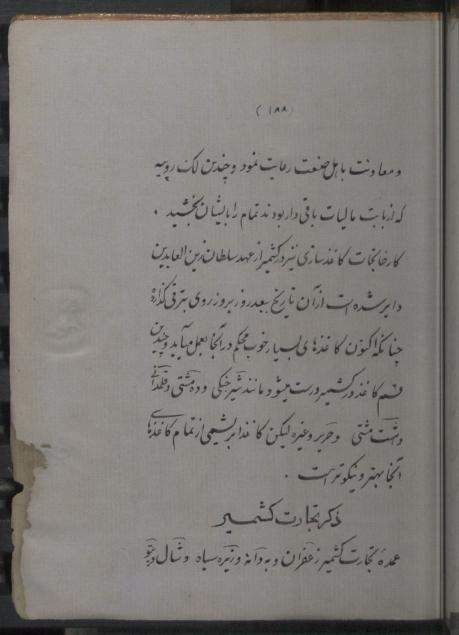 (۱۸۸)
و معاونت باهل صنعت رعایت نمود و چندین لک روپیه
که از بابت مالیات باقی دار بودند تمام را بایشان بخشید .
کارخانجات کاغذ سازی نیز در کشمیر از عهد سلطان زین العابدین
دایر شده است از آن تاریخ ببعد روز بروز روی بترقی گذارده
چنانکه اکنون کاغذهای بسیار خوب محکم در آنجا بعمل میآید و چندین
قسم کاغذ در کشمیر درست میشود مانند شیرجنگی و ده مشتی و
و هشت مشتی و حریر و غیره لیکن کاغذ ابریشمی از تمام کاغذهای
آنجا بهتر و نیکوتر است .
ذکر تجارت کشمیر
عمدهٔ تجارت کشمیر زعفران و به دانه و زیره سیاه و شال و